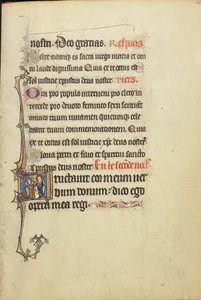 nostri. Deo gratias. Respons
Felix namque es sacra virgo maria et om
ni laude dignissima Quia ex te ortus est
sol iusticie xps deus noster. Vers.
Ora pro populo interveni pro clero in
tercede pro devoto femineo sexu sentiant
omnes tuum iuvamen quicumque cele
brant tuam commemorationem. Quia
ex te ortus est sol iusticie xps deus noster
Gloria patri et filio et spiritui sancto
xpistus deus noster.
Eructavit cor meum ver
bum bonum: dico ego
opera mea regi.